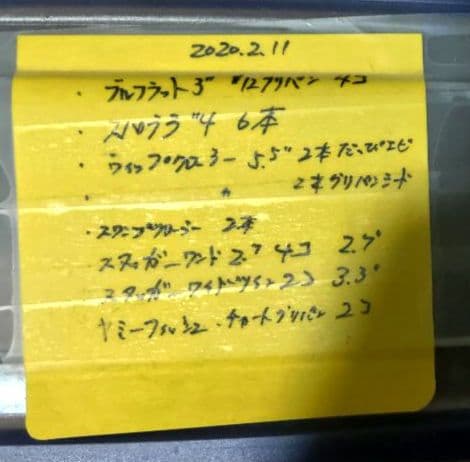 2020.2.11
・ブルフラット3" グリパン 4コ
・スパテラ"4 6本
・ウィップクローラー 5.5" 2本 だっぴエビ
・ 〃 2本 グリパンシード
・スワンプクローラー 2本
スタッガーワンド 2.7 4コ 2.7"
スタッガーワイドツイン 2コ 3.3"
ヤミーフィッシュ チャートグリパン 2コ